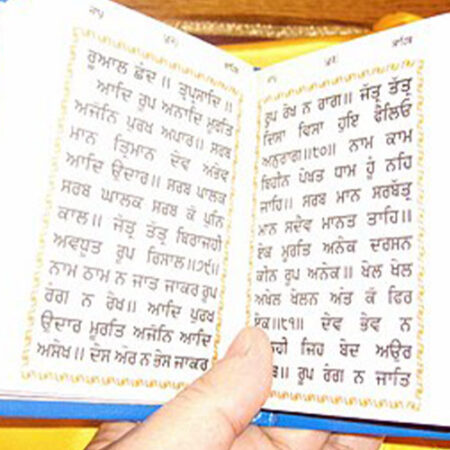 ਜਾਪੁ ਸਾਹਿਬ
ਰੂਆਲ ਛੰਦ ॥ ਤ੍ਵਪ੍ਰਸਾਦਿ ॥
ਆਦਿ ਰੂਪ ਅਨਾਦਿ ਮੂਰਤਿ
ਅਜੋਨਿ ਪੁਰਖ ਅਪਾਰ॥ ਸਰਬ
ਮਾਨ ਤ੍ਰਿਮਾਨ ਦੇਵ ਅਭੇਵ
ਆਦਿ ਉਦਾਰ॥ ਸਰਬ ਪਾਲਕ
ਸਰਬ ਘਾਲਕ ਸਰਬ ਕੋ ਪੁਨਿ
ਕਾਲ॥ ਜੱਤ੍ਰ ਤੱਤ੍ਰ ਬਿਰਾਜਹੀ
ਅਵਧੂਤ ਰੂਪ ਰਿਸਾਲ॥੭੯॥
ਨਾਮ ਠਾਮ ਨ ਜਾਤ ਜਾਕਰ ਰੂਪ
ਰੰਗ ਨ ਰੇਖ॥ ਆਦਿ ਪੁਰਖ
ਉਦਾਰ ਮੂਰਤਿ ਅਜੋਨਿ ਆਦਿ
ਅਸੇਖ॥ ਦੇਸ ਔਰ ਨ ਭੇਸ ਜਾਕਰ
ਸਾਹਿਬ
ਰੂਪ ਰੇਖ ਨ ਰਾਗ॥ ਜੱਤ੍ਰ ਤੱਤ੍ਰ
ਦਿਸਾ ਵਿਸਾ ਹੁਇ ਫੈਲਿਓ
ਅਨੁਰਾਗ॥੮੦॥ ਨਾਮ ਕਾਮ
ਬਿਹੀਨ ਪੇਖਤ ਧਾਮ ਹੂੰ ਨਹਿ
ਜਾਹਿ॥ ਸਰਬ ਮਾਨ ਸਰਬੱਤ੍ਰ
ਮਾਨ ਸਦੈਵ ਮਾਨਤ ਤਾਹਿ॥
ਏਕ ਮੂਰਤਿ ਅਨੇਕ ਦਰਸਨ
ਕੀਨ ਰੂਪ ਅਨੇਕ॥ ਖੇਲ ਖੇਲ
ਅਖੇਲ ਖੇਲਨ ਅੰਤ ਕੋ ਫਿਰ
ਏਕ॥੮੧॥ ਦੇਵ ਭੇਵ ਨ
ਹੀ ਜਿਹ ਬੇਦ ਅਉਰ
ਰੂਪ ਰੰਗ ਨ ਜਾਤਿ